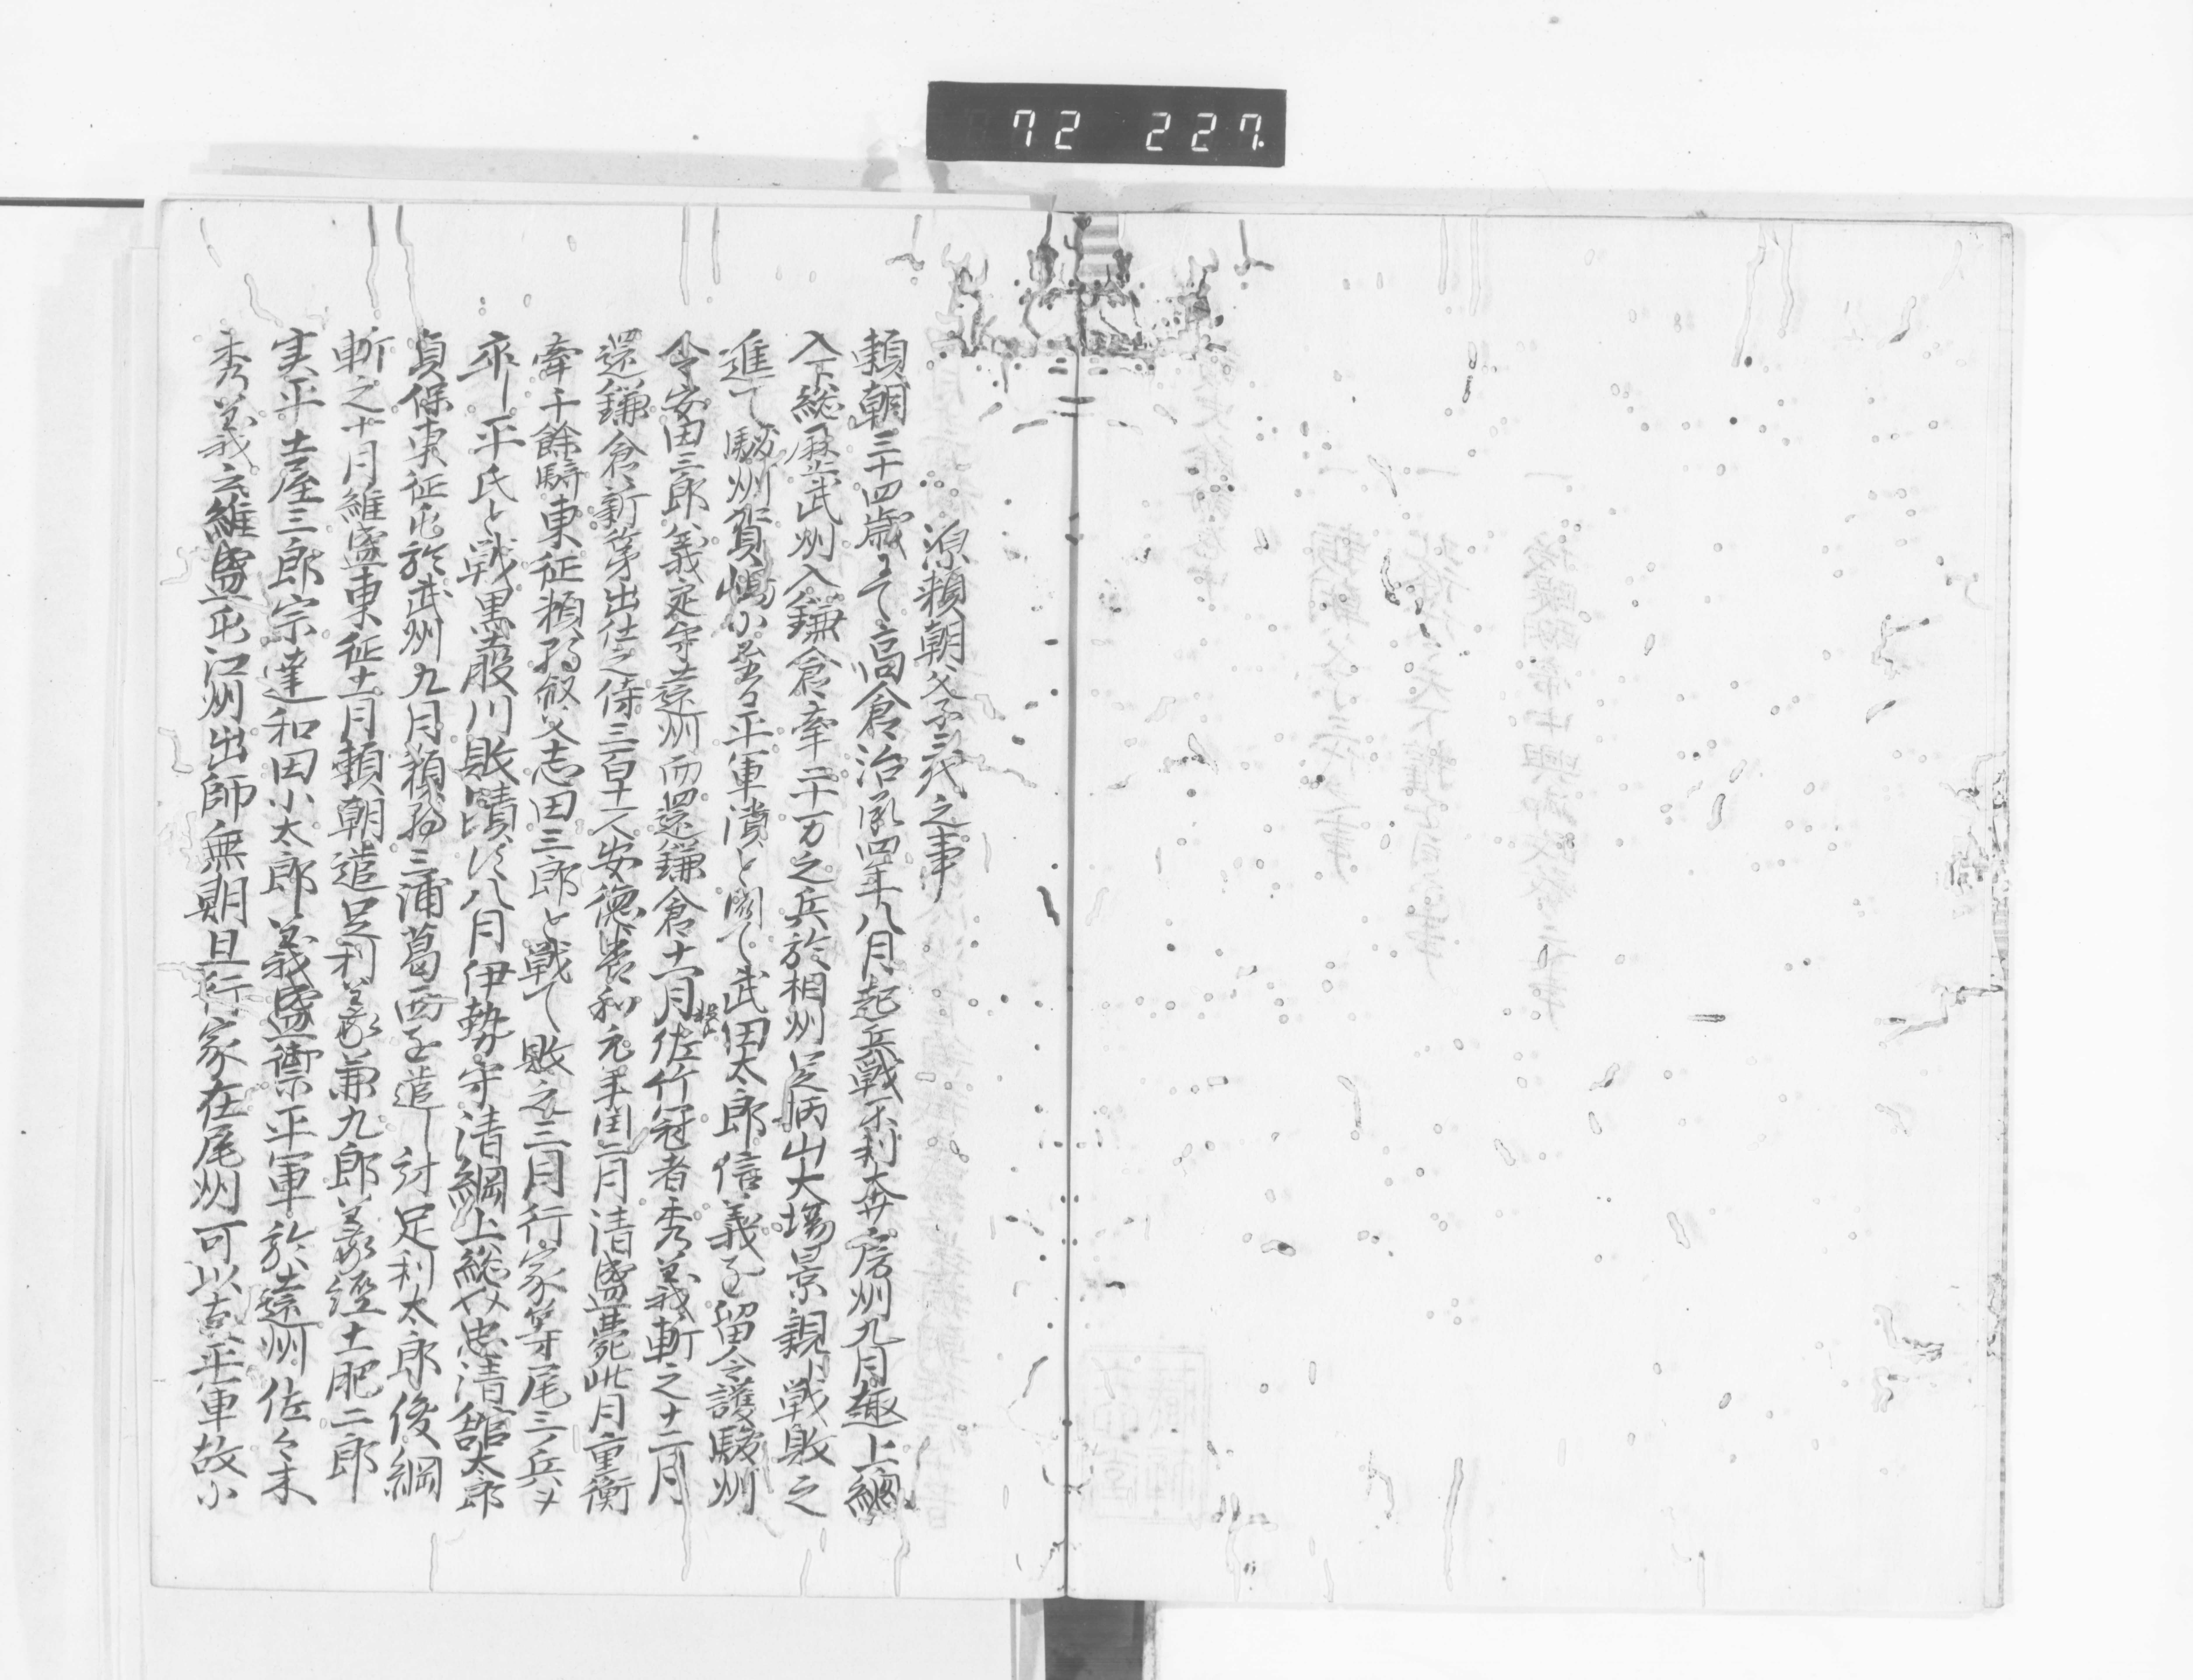 72 227.
源頼朝父子三代之事
頼朝三十四歳ニテ高倉治承四年八月起兵戦不利奔房州九月趣上總
入下総歴武州入鎌倉牽二十万之兵於相州足柄山大場景親戦敗之
進テ駿州賀嶋小至ル平軍潰ト聞テ武田太郎信義ヲ留令護駿州
令安田三郎義定守遠州而還鎌倉十一月佐竹冠者秀義斬之十二月
還鎌倉新第出仕之侍三百十一人安徳養和元年閏二月清盛薨此月重衡
牽千餘騎東征頼朝叔父志田三郎と戦て敗之三月行家等尾三ノ兵ヲ
卒し平氏と戦墨股川敗績ス八月伊勢守清綱上総介忠清舘太郎
貞保東征屯於武州九月頼朝三浦葛西を遣し討足利太郎俊綱
斬之十月維盛東征十一月頼朝遣足利義兼九郎義經土肥二郎
実平土屋三郎宗遠和田小太郎義盛禦平軍於遠州佐々木
秀義云維盛屯江州出師無期且行家在尾州可以禦平軍故小